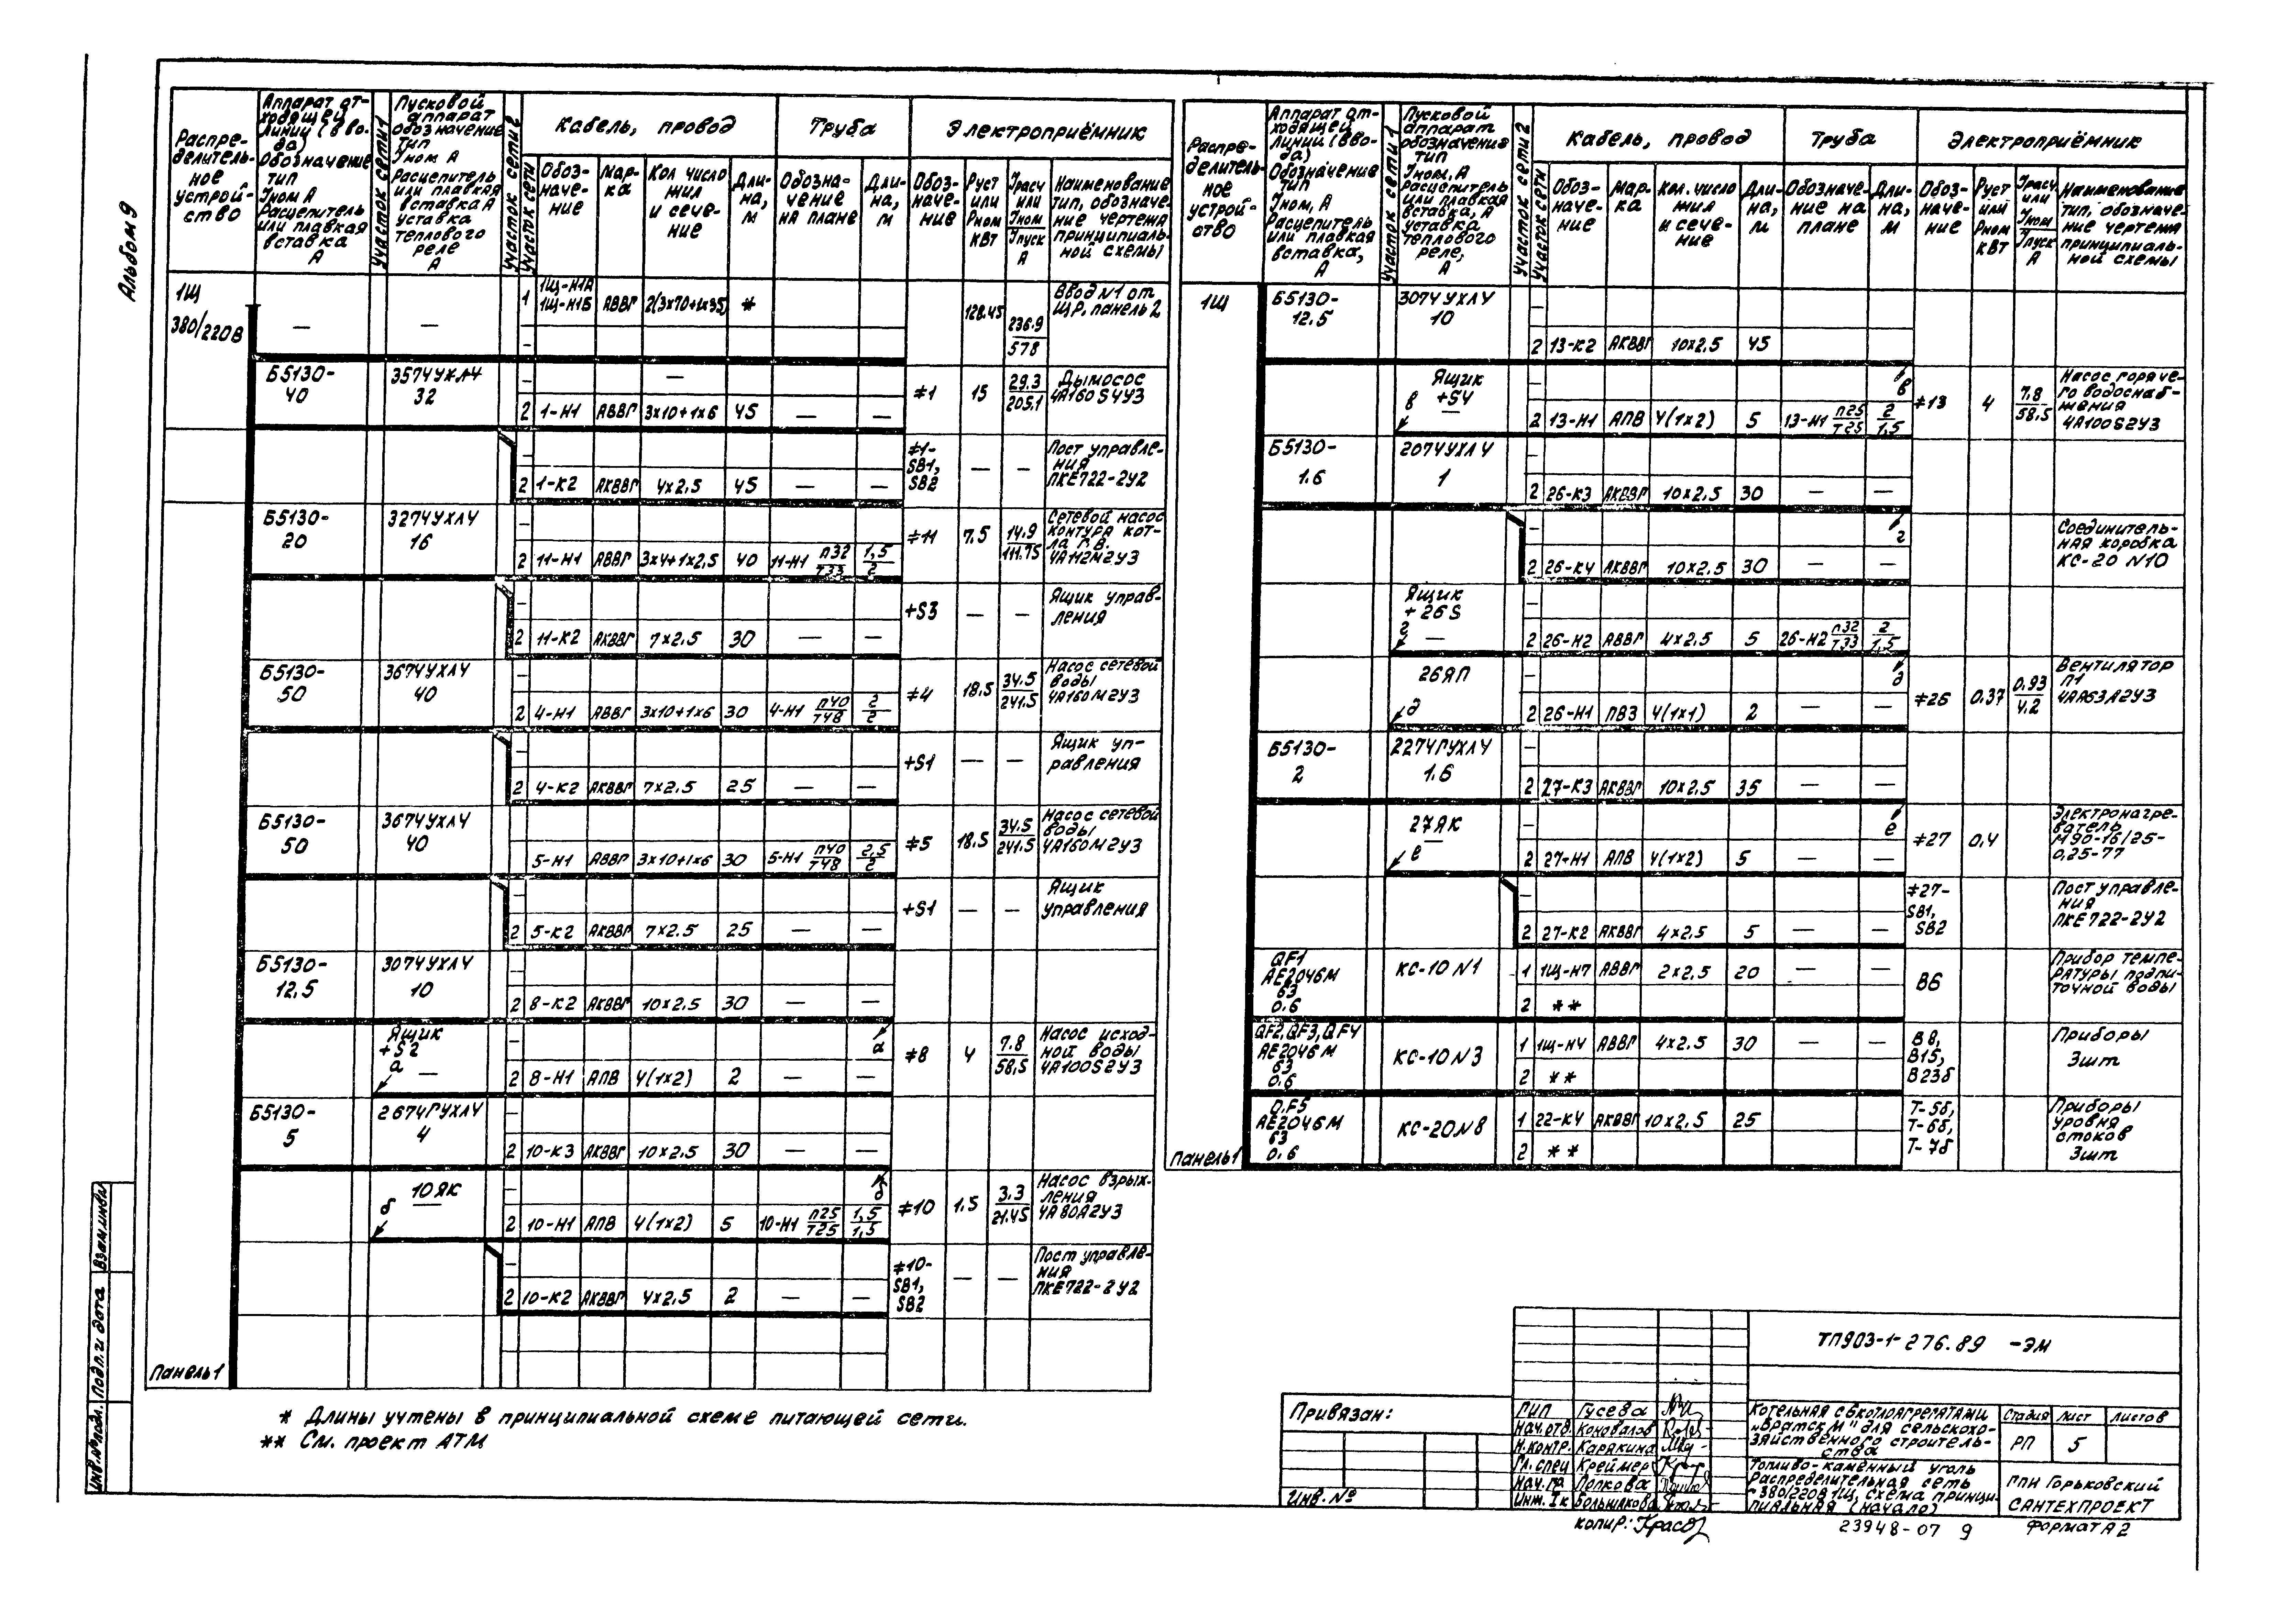 Альбом 9
Распределительное устройство
Аппарат отходящей линии (ввода) Обозначение тип Iном А Расцепитель или плавкая вставка А
Участок сети 1
Пусковой аппарат обозначение тип Iном А Расцепитель или плавкая вставка А уставка теплового реле А
Участок сети 2
Участок сети
Кабель, провод
Обозначение
Марка
Кол число жил и сечение
Длина, м
Труба
Обозначение на плане
Длина, м
Электроприёмник
Обозначение
Руст или Рном кВт
Iрасч или Iном / Iпуск А
Наименование тип, обозначение чертежа принципиальной схемы
1Щ 380/220В — — 1 1Щ-Н1А 1Щ-Н1Б АВВГ 2(3х70+1х35) * 128.45 236.9/578 Ввод N1 от ЩР, панель 2
Б5130-40 3574УХЛ4 32 — 2 1-Н1 АВВГ 3х10+1х6 45 — — ≠1 15 29.3/205.1 Дымосос 4А160S4У3
2 1-К2 АКВВГ 4х2.5 45 — — ≠1-SB1, SB2 — — Пост управления ПКЕ722-2У2
Б5130-20 3274УХЛ4 16 2 11-Н1 АВВГ 3х4+1х2,5 40 11-Н1 П32/Т33 1,5/2 ≠11 7.5 14.9/111.75 Сетевой насос контура котла Г.В. 4А112М2У3
2 11-К2 АКВВГ 7х2.5 30 — — +S3 — — Ящик управления
Б5130-50 3674УХЛ4 40 2 4-Н1 АВВГ 3х10+1х6 30 4-Н1 П40/Т48 2/2 ≠4 18.5 34.5/241.5 Насос сетевой воды 4А160М2У3
2 4-К2 АКВВГ 7х2.5 25 — — +S1 — — Ящик управления
Б5130-50 3674УХЛ4 40 5-Н1 АВВГ 3х10+1х6 30 5-Н1 П40/Т48 2,5/2 ≠5 18.5 34.5/241.5 Насос сетевой воды 4А160М2У3
2 5-К2 АКВВГ 7х2.5 25 — — +S1 — — Ящик управления
Б5130-12,5 3074УХЛ4 10 2 8-К2 АКВВГ 10х2.5 30 — —
Ящик +S2 а — 2 8-Н1 АПВ 4(1х2) 2 — — а ≠8 4 7.8/58,5 Насос исходной воды 4А100S2У3
Б5130-5 2674ГУХЛ4 4 2 10-К3 АКВВГ 10х2.5 30 — —
10ЯК б — 2 10-Н1 АПВ 4(1х2) 5 10-Н1 П25/Т25 1,5/1,5 б ≠10 1.5 3.3/21.45 Насос взрыхления 4А80А2У3
2 10-К2 АКВВГ 4х2.5 2 — — ≠10-SB1, SB2 — — Пост управления ПКЕ722-2У2
Панель 1
Распределительное устройство
Аппарат отходящей линии (ввода) Обозначение тип Iном, А Расцепитель или плавкая вставка, А
Участок сети 1
Пусковой аппарат обозначение тип Iном, А Расцепитель или плавкая вставка, А уставка теплового реле, А
Участок сети 2
Участок сети
Кабель, провод
Обозначение
Марка
Кол. число жил и сечение
Длина, м
Труба
Обозначение на плане
Длина, м
Электроприёмник
Обозначение
Руст или Рном кВт
Iрасч или Iном / Iпуск А
Наименование тип, обозначение чертежа принципиальной схемы
1Щ Б5130-12.5 3074УХЛ4 10 2 13-К2 АКВВГ 10х2.5 45
Ящик +S4 в — 2 13-Н1 АПВ 4(1х2) 5 13-Н1 П25/Т25 2/1,5 в ≠13 4 7.8/58.5 Насос горячего водоснабжения 4А100S2У3
Б5130-1.6 2074УХЛ4 1 2 26-К3 АКВВГ 10х2.5 30 — —
2 26-К4 АКВВГ 10х2.5 30 — — г Соединительная коробка КС-20 N10
Ящик +26S г — 2 26-Н2 АВВГ 4х2.5 5 26-Н2 П32/Т33 2/1,5
26ЯП д 2 26-Н1 ПВ3 4(1х1) 2 — — д ≠26 0.37 0.93/4.2 Вентилятор П1 4АА63А2У3
Б5130-2 2274ГУХЛ4 1.6 2 27-К3 АКВВГ 10х2.5 35 — —
27ЯК е — 2 27-Н1 АПВ 4(1х2) 5 — — е ≠27 0,4 Электронагреватель М90-16/25-0,25-77
2 27-К2 АКВВГ 4х2.5 5 — — ≠27-SB1, SB2 Пост управления ПКЕ722-2У2
QF1 АЕ2046М 63 0.6 КС-10 N1 1 1Щ-Н7 АВВГ 2х2.5 20 — — 2 ** В6 Прибор температуры подпиточной воды
QF2, QF3, QF4 АЕ2046М 63 0.6 КС-10 N3 1 1Щ-Н4 АВВГ 4х2.5 30 — — 2 ** В8, В15, В23б Приборы 3шт
QF5 АЕ2046М 63 0.6 КС-20 N8 1 22-К4 АКВВГ 10х2.5 25 2 ** Т-5б, Т-6б, Т-7б Приборы уровня стоков 3шт
Панель 1
* Длины учтены в принципиальной схеме питающей сети.
** См. проект АТМ
Привязан:
Инв. №
ТП903-1-276.89 -ЭМ
ГИП Гусева
Нач.отд. Коновалов
Н.контр. Карякина
Гл.спец Креймер
Нач.гр Попкова
Инж. Iк
Котельная с 6 котлоагрегатами
„Братск М" для сельскохо-
зяйственного строитель-
ства
Топливо-каменный уголь
Распределительная сеть
~380/220В 1Щ, схема принци-
пиальная (начало)
Стадия Лист Листов
РП 5
ГПИ Горьковский
САНТЕХПРОЕКТ
копир:
23948-07 9
Формат А2
Инв.№подл. Подп. и дата Взам.инв.№